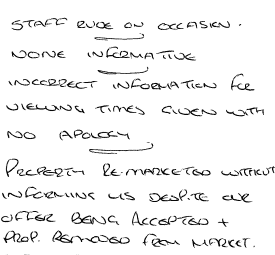 STAFF RUDE ON OCCASION.
NONE INFORMATIVE
INCORRECT INFORMATION FOR
VIEWING TIMES GIVEN WITH
NO APOLOGY
PROPERTY RE-MARKETED WITHOUT
INFORMING US DESPITE OUR
OFFER BEING ACCEPTED +
PROP. REMOVED FROM MARKET.